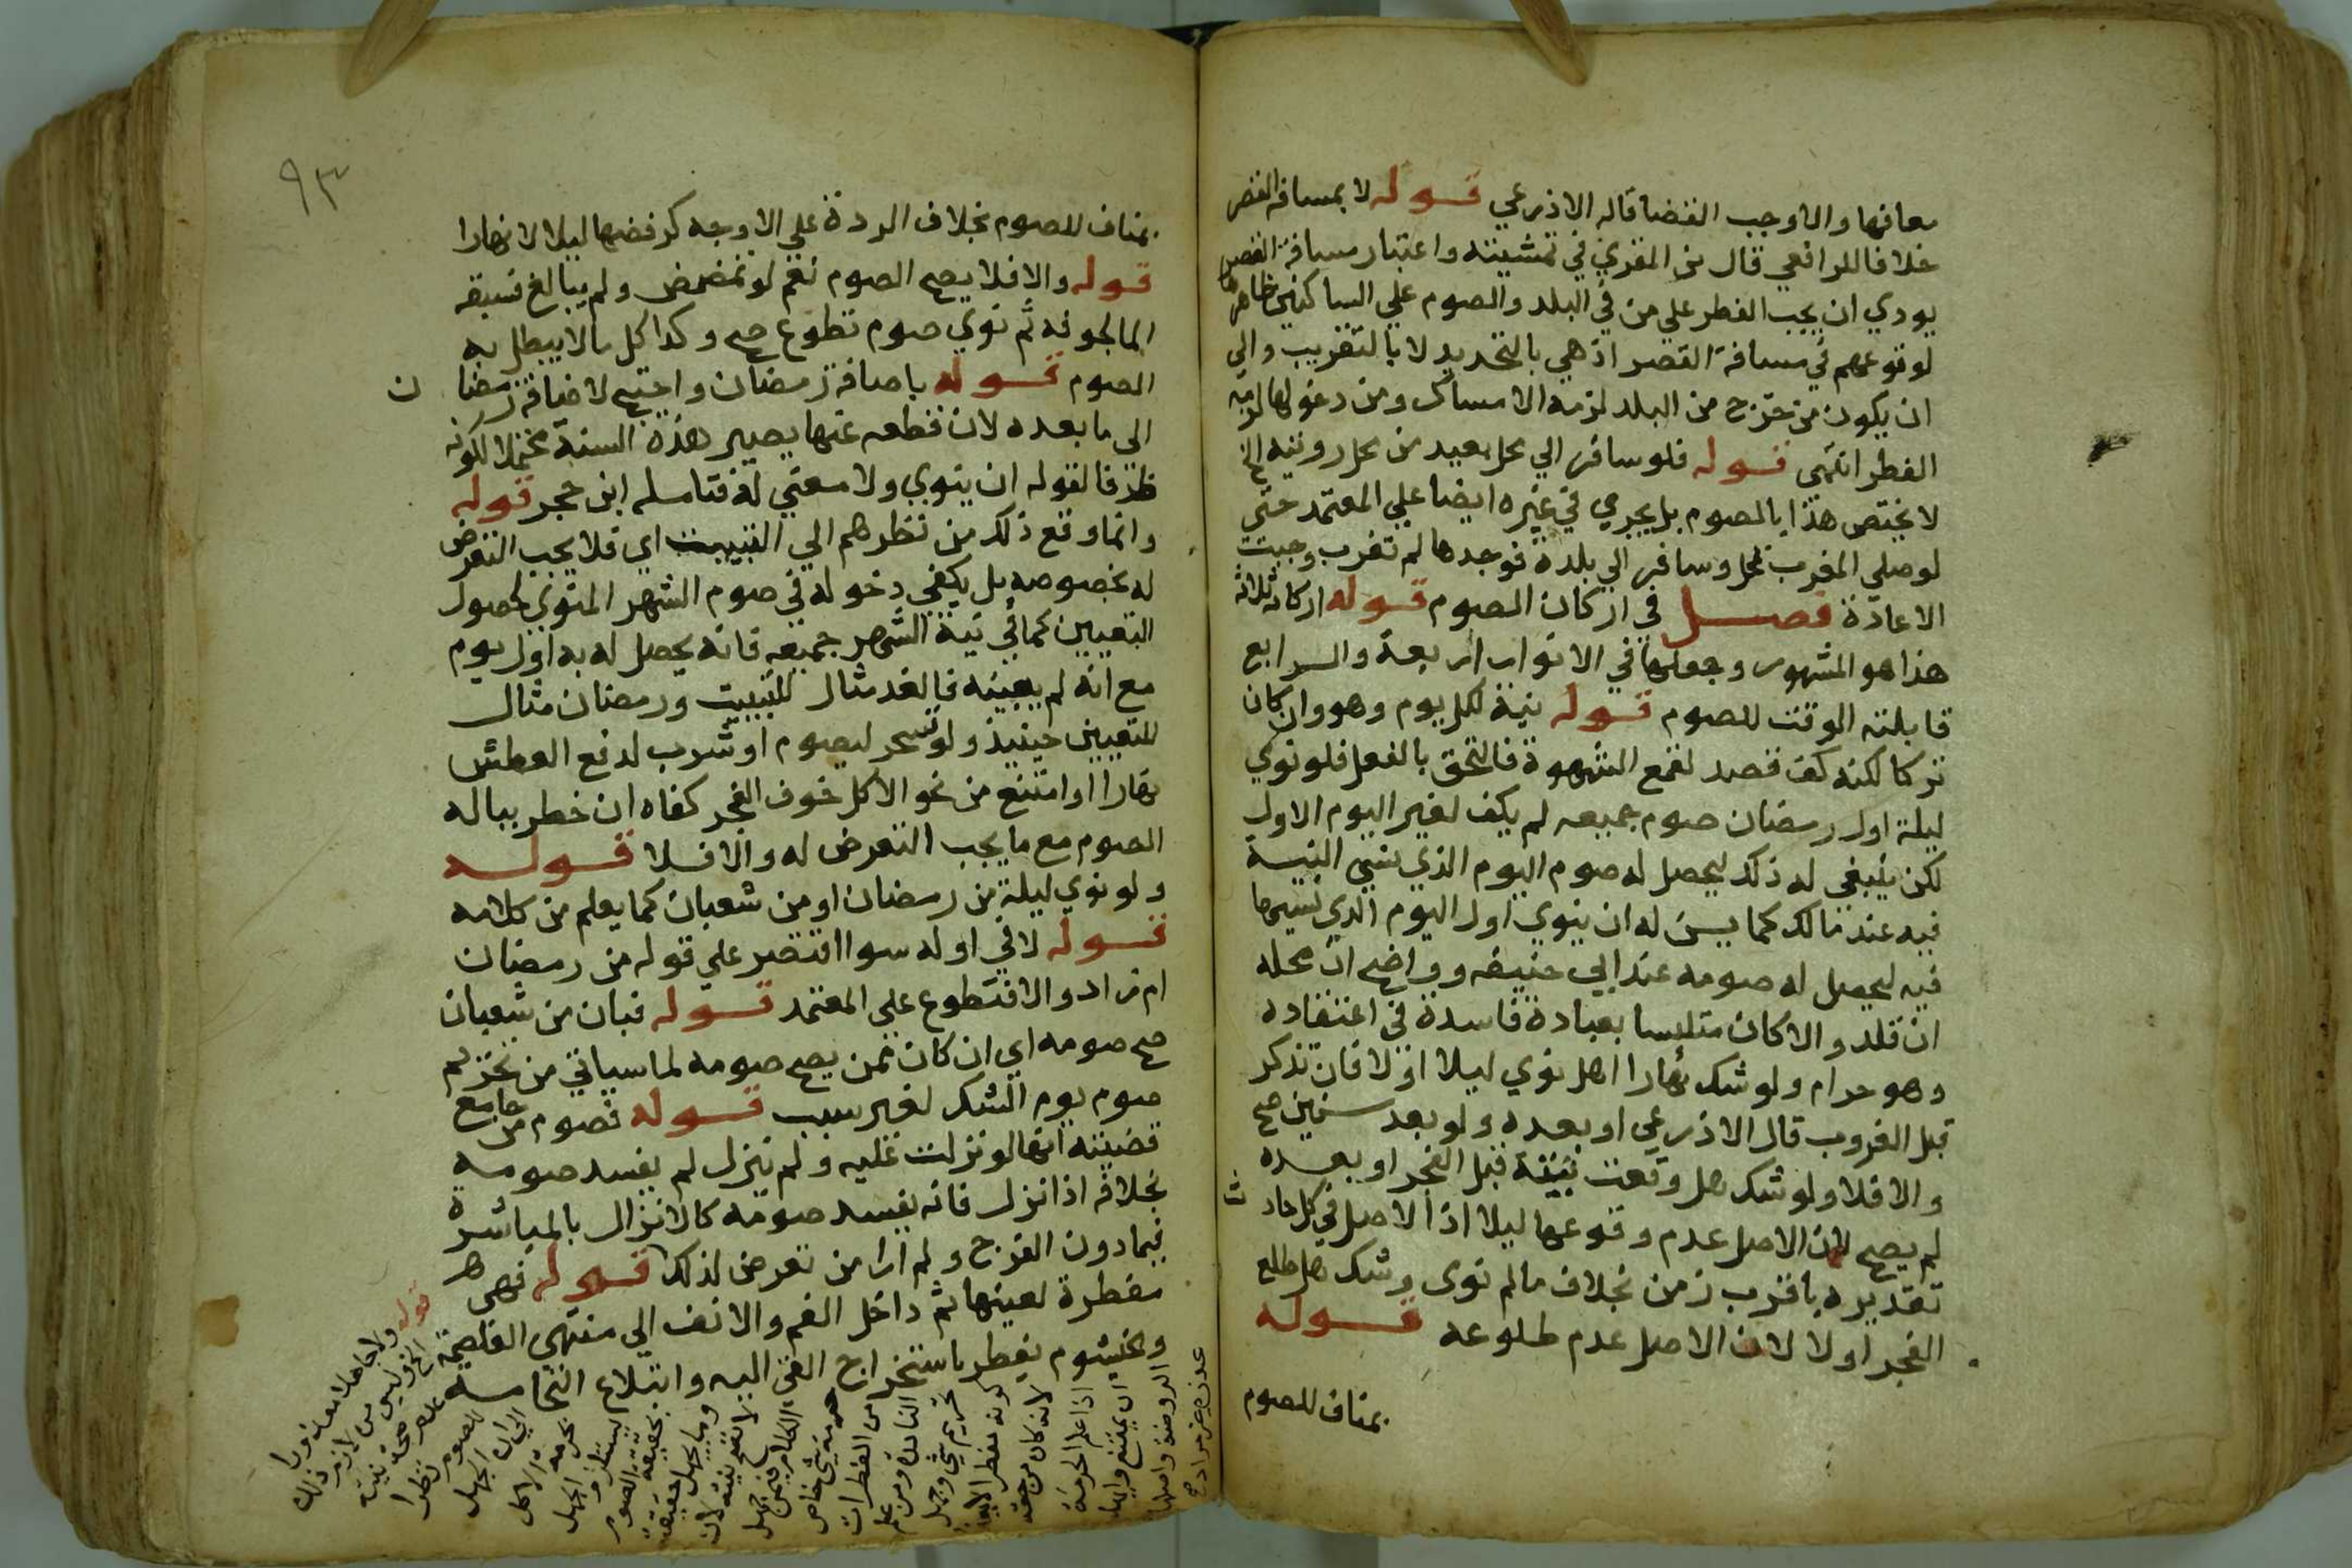 معافيها والا وجب القضا قاله الاذرعي قوله لا بمسافة القصر
خلافا للرافعي قال بن المقري في تمشيته واعتبار مسافة القصر
يودي ان يجب الفطر علي من في البلد والصوم علي الساكنين خارجها
لوقوعهم في مسافة القصر اذ هي بالتحديد لا بالتقريب والي
ان يكون من خرج من البلد لزمه الامساك ومن دخولها لزمه
الفطر انتهى قوله فلو سافر الي محل بعيد من محل رويته الخ
لا يختص هذا بالصوم بل يجري في غيره ايضا علي المعتمد حتى
لوصلي المغرب بمحل وسافر الي بلدة فوجدها لم تغرب وجبت
الاعادة فصل في اركان الصوم قوله اركانه ثلاثة
هذا هو المشهور وجعلها في الانوار اربعة والرابع
قابلته الوقت للصوم قوله نية لكل يوم وهو وان كان
تركا لكنه كف قصد لقمع الشهوة فالتحق بالفعل فلو نوي
ليلة اول رمضان صوم جميعه لم يكف لغير اليوم الاول
لكن ينبغي له ذلك ليحصل له صوم اليوم الذي نسي النية
فيه عند مالك كما يسن له ان ينوي اول اليوم الذي نسيها
فيه ليحصل له صومه عند ابي حنيفه وواضح ان محله
ان قلد والا كان متلبسا بعبادة فاسدة في اعتقاده
وهو حرام ولو شك نهارا اهل نوي ليلا او لا فان تذكر
قبل الغروب قال الاذرعي او بعده ولو بعد سنين صح
والا فلا ولو شك هل وقعت نيته قبل الفجر او بعده
لم يصح لان الاصل عدم وقوعها ليلا اذ الاصل في كل حادث
تقديره باقرب زمن بخلاف مالم نوى وشك هل طلع
الفجر اولا لان الاصل عدم طلوعه قوله
بمناف للصوم
٩٣
بمناف للصوم بخلاف الردة علي الاوجه كرفضها ليلا لا نهارا
قوله والا فلا يصح الصوم نعم لو تمضمض ولم يبالغ فسبقه
الما لجوفه ثم نوي صوم تطوع صح وكذا كل مالا يبطل به
الصوم قوله باضافة رمضان واحتيج لاضافة رمضان
الى ما بعده لان قطعه عنها يصير هذه السنة محتملا لكونه
ظرفا لقوله ان ينوي ولا معني له فتامله ابن حجر قوله
وانما وقع ذلك من نظرهم الي التبييت اي فلا يجب التعرض
له بخصوصه بل يكفي دخوله في صوم الشهر المنوي لحصول
التعيين كما في نية الشهر جميعه فانه يحصل له به اول يوم
مع انه لم يعينه فالغد مثال للتبييت ورمضان مثال
للتعيين حينيذ ولو تسحر ليصوم او شرب لدفع العطش
نهارا او امتنع من نحو الاكل خوف الفجر كفاه ان خطر بباله
الصوم مع ما يجب التعرض له والا فلا قوله
ولو نوي ليلة من رمضان او من شعبان كما يعلم من كلامه
قوله لا في اوله سوا اقتصر علي قوله من رمضان
ام زاد والا فتطوع علي المعتمد قوله فبان من شعبان
صح صومه اي ان كان ممن يصح صومه لما سياتي من تحريم
صوم يوم الشك لغير سبب قوله فصوم من جامع
قضيته انها لو نزلت عليه ولم ينزل لم يفسد صومه
بخلافه اذا نزل فانه يفسد صومه كالانزال بالمباشرة
فيما دون الفرج ولم ارا من تعرض لذلك قوله فهى
مفطرة لعينها ثم داخل الفم والانف الي منتهي الغلصمة
وخيشوم يفطر باستخراج القى اليه وابتلاع النخامه
قوله ولا جاهلا معذورا